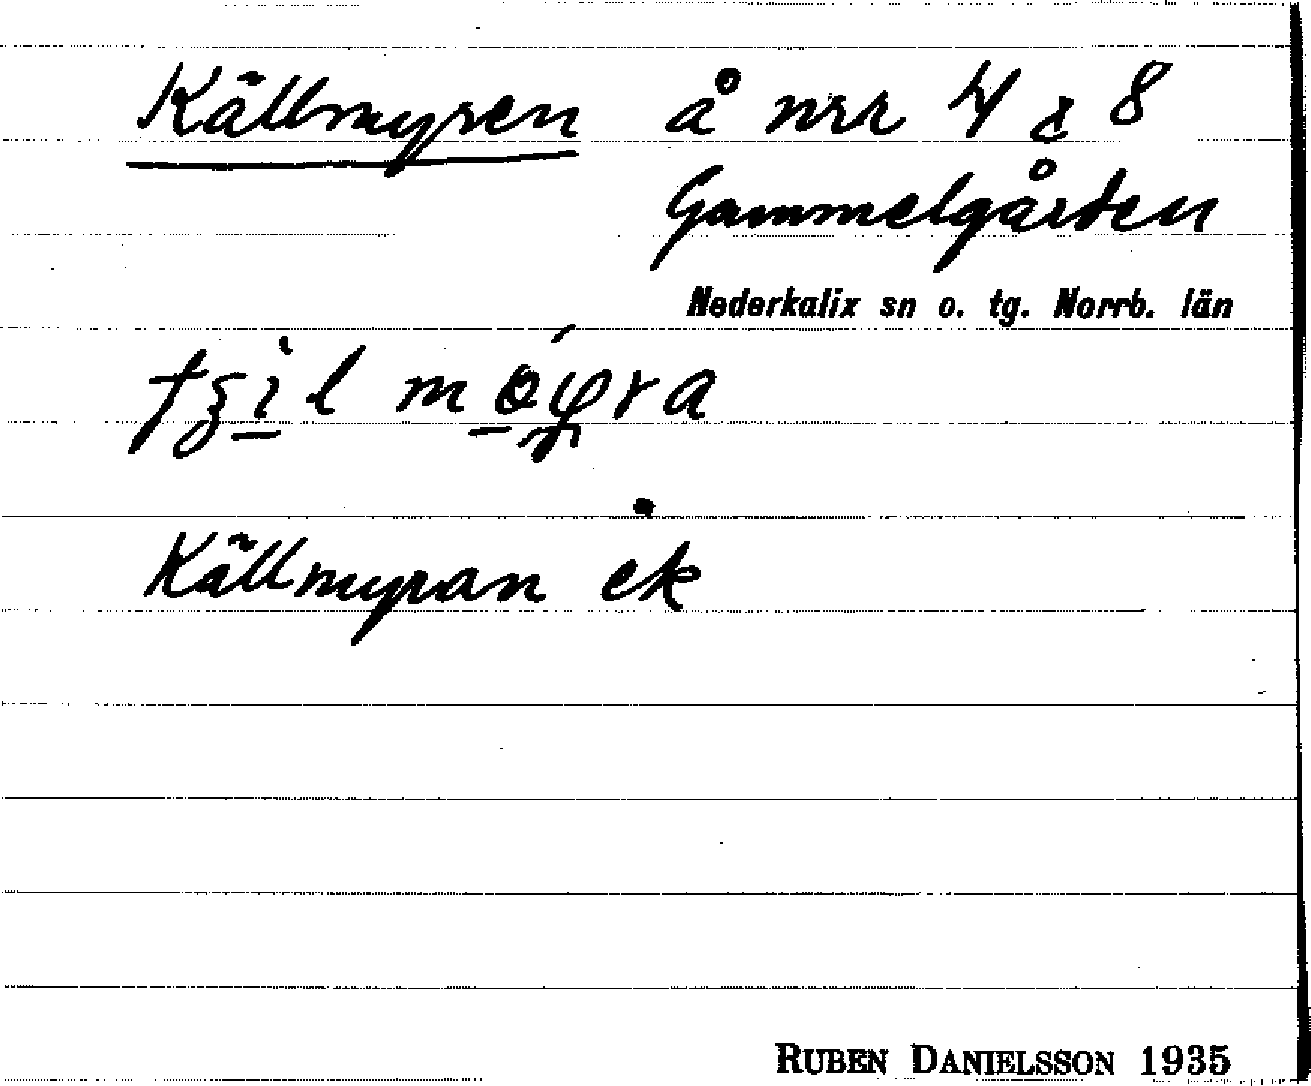 Källmyren å nrr 4 & 8
Gammelgården
Nederkalix sn o. tg. Norrb. län
Källmyran ek
RUBEN DANIELSSON 1935